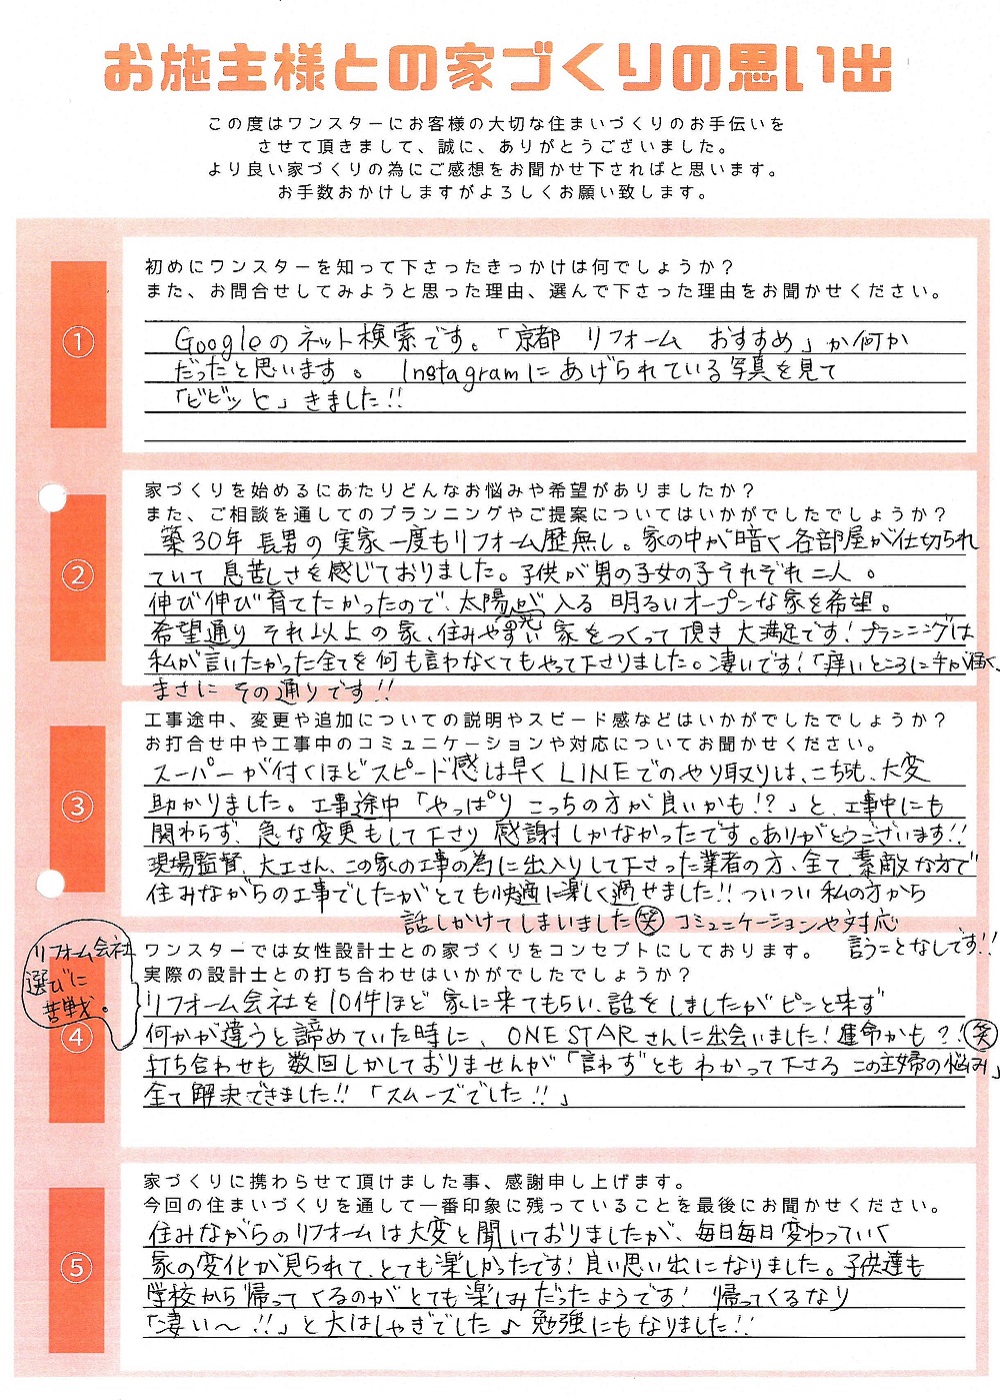 お施主様との家づくりの思い出
この度はワンスターにお客様の大切な住まいづくりのお手伝いを
させて頂きまして、誠に、ありがとうございました。
より良い家づくりの為にご感想をお聞かせ下さればと思います。
お手数おかけしますがよろしくお願い致します。
①
初めにワンスターを知って下さったきっかけは何でしょうか？
また、お問合せしてみようと思った理由、選んで下さった理由をお聞かせください。
Googleのネット検索です。「京都 リフォーム おすすめ」か何か
だったと思います。 Instagramにあげられている写真を見て
「ビビッと」きました!!
②
家づくりを始めるにあたりどんなお悩みや希望がありましたか？
また、ご相談を通してのプランニングやご提案についてはいかがでしたでしょうか？
築30年 長男の実家一度もリフォーム歴無し。家の中が暗く各部屋が仕切られ
ていて 息苦しさを感じておりました。子供が男の子女の子それぞれ二人。
伸び伸び育てたかったので、太陽光が入る 明るいオープンな家を希望。
希望通り それ以上の家、住みやすい家をつくって頂き 大満足です！プランニングは
私が言いたかった全てを何も言わなくてもやって下さりました。凄いです！「痒いところに手が届く」
まさに その通りです!!
③
工事途中、変更や追加についての説明やスピード感などはいかがでしたでしょうか？
お打合せ中や工事中のコミュニケーションや対応についてお聞かせください。
スーパーが付くほどスピード感は早くLINEでのやり取りは、こちらも、大変
助かりました。工事途中「やっぱり こっちの方が良いかも!?」と、工事中にも
関わらず、急な変更もして下さり 感謝しかなかったです。ありがとうございます!!
現場監督、大工さん、この家の工事の為に出入りして下さった業者の方、全て、素敵な方で
住みながらの工事でしたがとても快適に楽しく過せました!! ついつい私の方から
話しかけてしまいました㊗笑 コミュニケーションや対応
言うことなしです!!
リフォーム会社
選びに
苦戦。
④
ワンスターでは女性設計士との家づくりをコンセプトにしております。
実際の設計士との打ち合わせはいかがでしたでしょうか？
リフォーム会社を10件ほど 家に来てもらい、話をしましたがピンと来ず
何かが違うと諦めていた時に、ONE STARさんに出会いました！運命かも?! 笑
打ち合わせも 数回しかしておりませんが「言わずともわかって下さる この主婦の悩み」
全て解決できました!! 「スムーズでした!!」
⑤
家づくりに携わらせて頂けました事、感謝申し上げます。
今回の住まいづくりを通して一番印象に残っていることを最後にお聞かせください。
住みながらのリフォームは大変と聞いておりましたが、毎日毎日変わっていく
家の変化が見られて、とても楽しかったです！良い思い出になりました。子供達も
学校から帰ってくるのがとても楽しみだったようです！ 帰ってくるなり
「凄い〜!!」と大はしゃぎでした♪ 勉強にもなりました!!